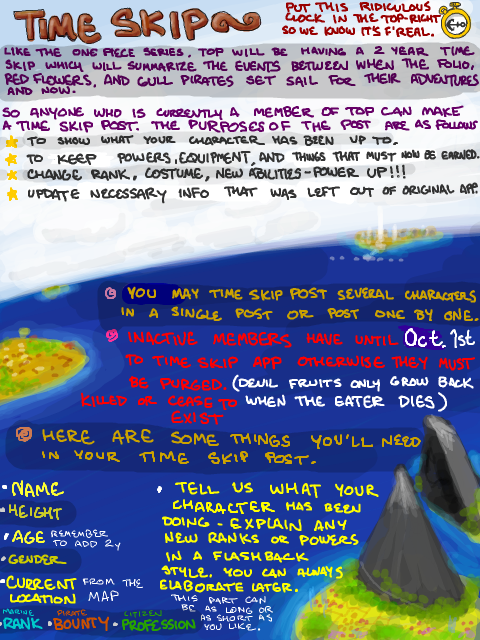 TIME SKIP
PUT THIS RIDICULOUS
CLOCK IN THE TOP-RIGHT
SO WE KNOW IT'S F'REAL.
LIKE THE ONE PIECE SERIES, TOP WILL BE HAVING A 2 YEAR TIME
SKIP WHICH WILL SUMMARIZE THE EVENTS BETWEEN WHEN THE FOLIO,
RED FLOWERS, AND GULL PIRATES SET SAIL FOR THEIR ADVENTURES
AND NOW.
SO ANYONE WHO IS CURRENTLY A MEMBER OF TOP CAN MAKE
A TIME SKIP POST. THE PURPOSES OF THE POST ARE AS FOLLOWS
TO SHOW WHAT YOUR CHARACTER HAS BEEN UP TO.
TO KEEP POWERS, EQUIPMENT, AND THINGS THAT MUST NOW BE EARNED.
CHANGE RANK, COSTUME, NEW ABILITIES - POWER UP!!!
UPDATE NECESSARY INFO THAT WAS LEFT OUT OF ORIGINAL APP.
YOU MAY TIME SKIP POST SEVERAL CHARACTERS
IN A SINGLE POST OR POST ONE BY ONE.
INACTIVE MEMBERS HAVE UNTIL Oct. 1st
TO TIME SKIP APP OTHERWISE THEY MUST
BE PURGED. (DEVIL FRUITS ONLY GROW BACK
KILLED OR CEASE TO WHEN THE EATER DIES)
EXIST
HERE ARE SOME THINGS YOU'LL NEED
IN YOUR TIME SKIP POST.
• NAME
• HEIGHT
• AGE REMEMBER TO ADD 2y
• GENDER
• CURRENT LOCATION FROM THE MAP
MARINE RANK • PIRATE BOUNTY • CITIZEN PROFESSION
• TELL US WHAT YOUR
CHARACTER HAS BEEN
DOING - EXPLAIN ANY
NEW RANKS OR POWERS
IN A FLASHBACK
STYLE. YOU CAN ALWAYS
ELABORATE LATER.
THIS PART CAN
BE AS LONG OR
AS SHORT AS
YOU LIKE.